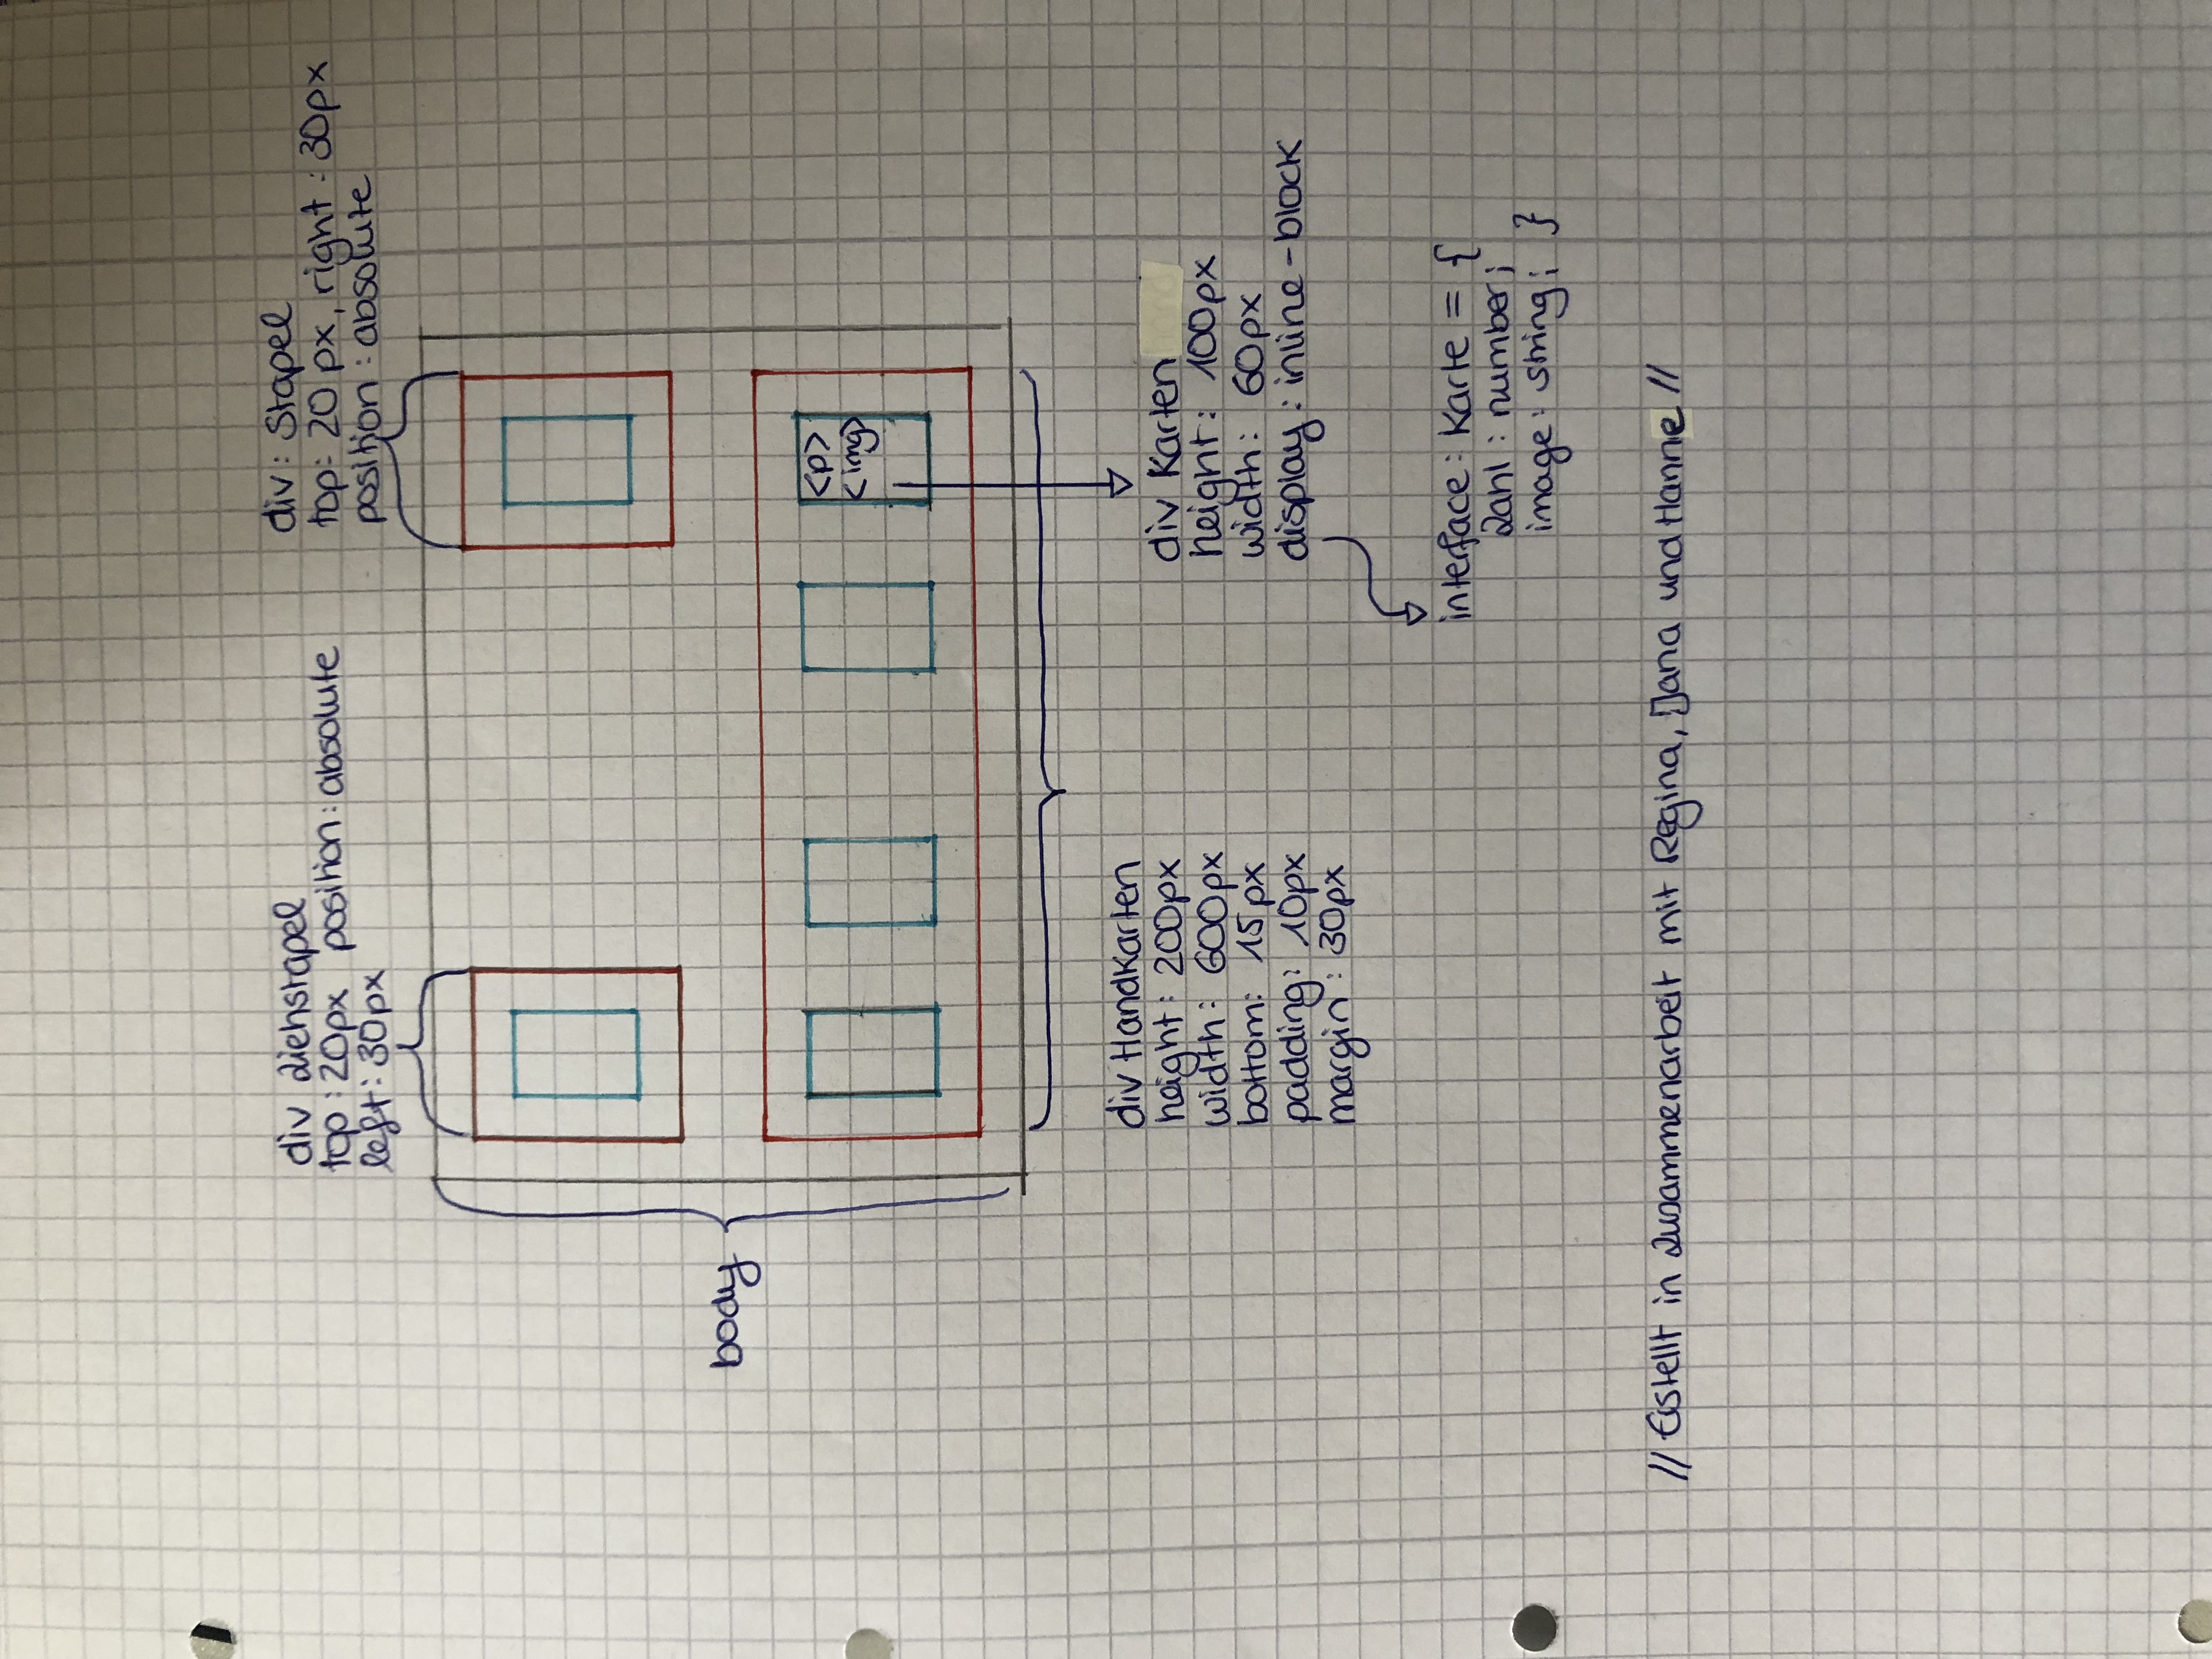 div Ziehstapel
top: 20px position: absolute
left: 30px
div: Stapel
top: 20px, right: 30px
position: absolute
body
<p>
<img>
div Handkarten
height: 200px
width: 600px
bottom: 15px
padding: 10px
margin: 30px
div Karten
height: 100px
width: 60px
display: inline-block
interface: Karte = {
Zahl: number;
image: string; }
// Erstellt in Zusammenarbeit mit Regina, Jana und Hanne //